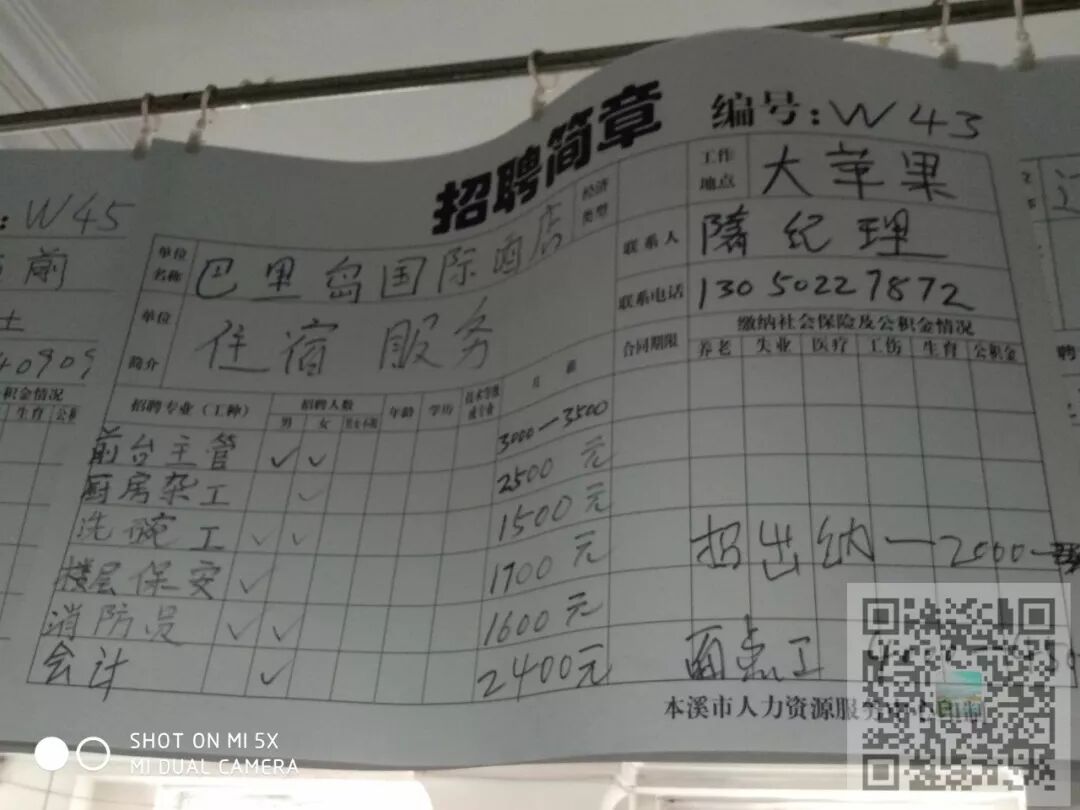 招聘简章 编号:W43
单位名称 巴里岛国际酒店 经济类型 工作地点 大苹果
联系人 隋纪理
单位简介 住宿 服务 联系电话 13050227872
合同期限 缴纳社会保险及公积金情况
养老 失业 医疗 工伤 生育 公积金
招聘专业(工种) 招聘人数 年龄 学历 技术等级或专业 月薪
男 女 男女不限
前台主管 ✓ ✓ 3000—3500
厨房杂工 ✓ 2500元
洗碗工 ✓ ✓ 1500元
楼层保安 ✓ 1700元 招出纳—2000
消防员 ✓ ✓ 1600元
会计 ✓ 2400元 面点工
本溪市人力资源服
:W45
前
土
40909
积金情况
生育 公积
聘
SHOT ON MI 5X
MI DUAL CAMERA